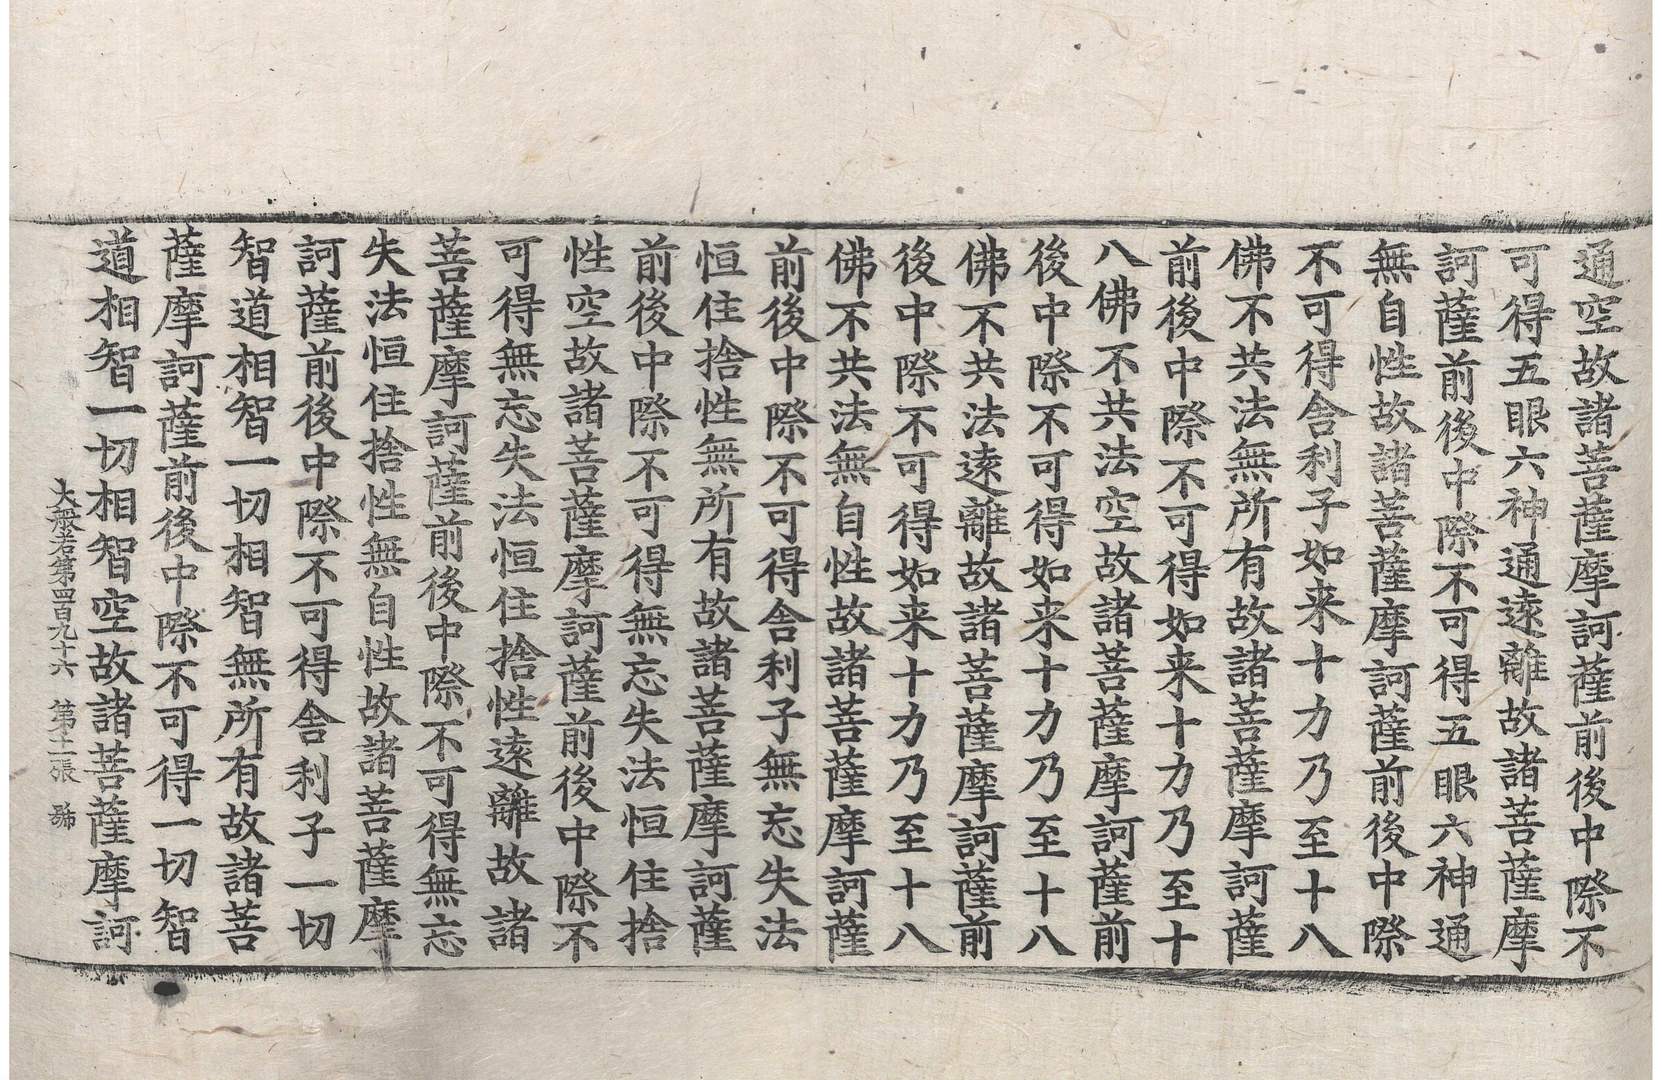 通空故諸菩薩摩訶薩前後中際不
可得五眼六神通遠離故諸菩薩摩
訶薩前後中際不可得五眼六神通
無自性故諸菩薩摩訶薩前後中際
不可得舍利子如来十力乃至十八
佛不共法無所有故諸菩薩摩訶薩
前後中際不可得如来十力乃至十
八佛不共法空故諸菩薩摩訶薩前
後中際不可得如来十力乃至十八
佛不共法遠離故諸菩薩摩訶薩前
後中際不可得如来十力乃至十八
佛不共法無自性故諸菩薩摩訶薩
前後中際不可得舍利子無忘失法
恒住捨性無所有故諸菩薩摩訶薩
前後中際不可得無忘失法恒住捨
性空故諸菩薩摩訶薩前後中際不
可得無忘失法恒住捨性遠離故諸
菩薩摩訶薩前後中際不可得無忘
失法恒住捨性無自性故諸菩薩摩
訶薩前後中際不可得舍利子一切
智道相智一切相智無所有故諸菩
薩摩訶薩前後中際不可得一切智
道相智一切相智空故諸菩薩摩訶
大般若第四百九十六 第十一張 號